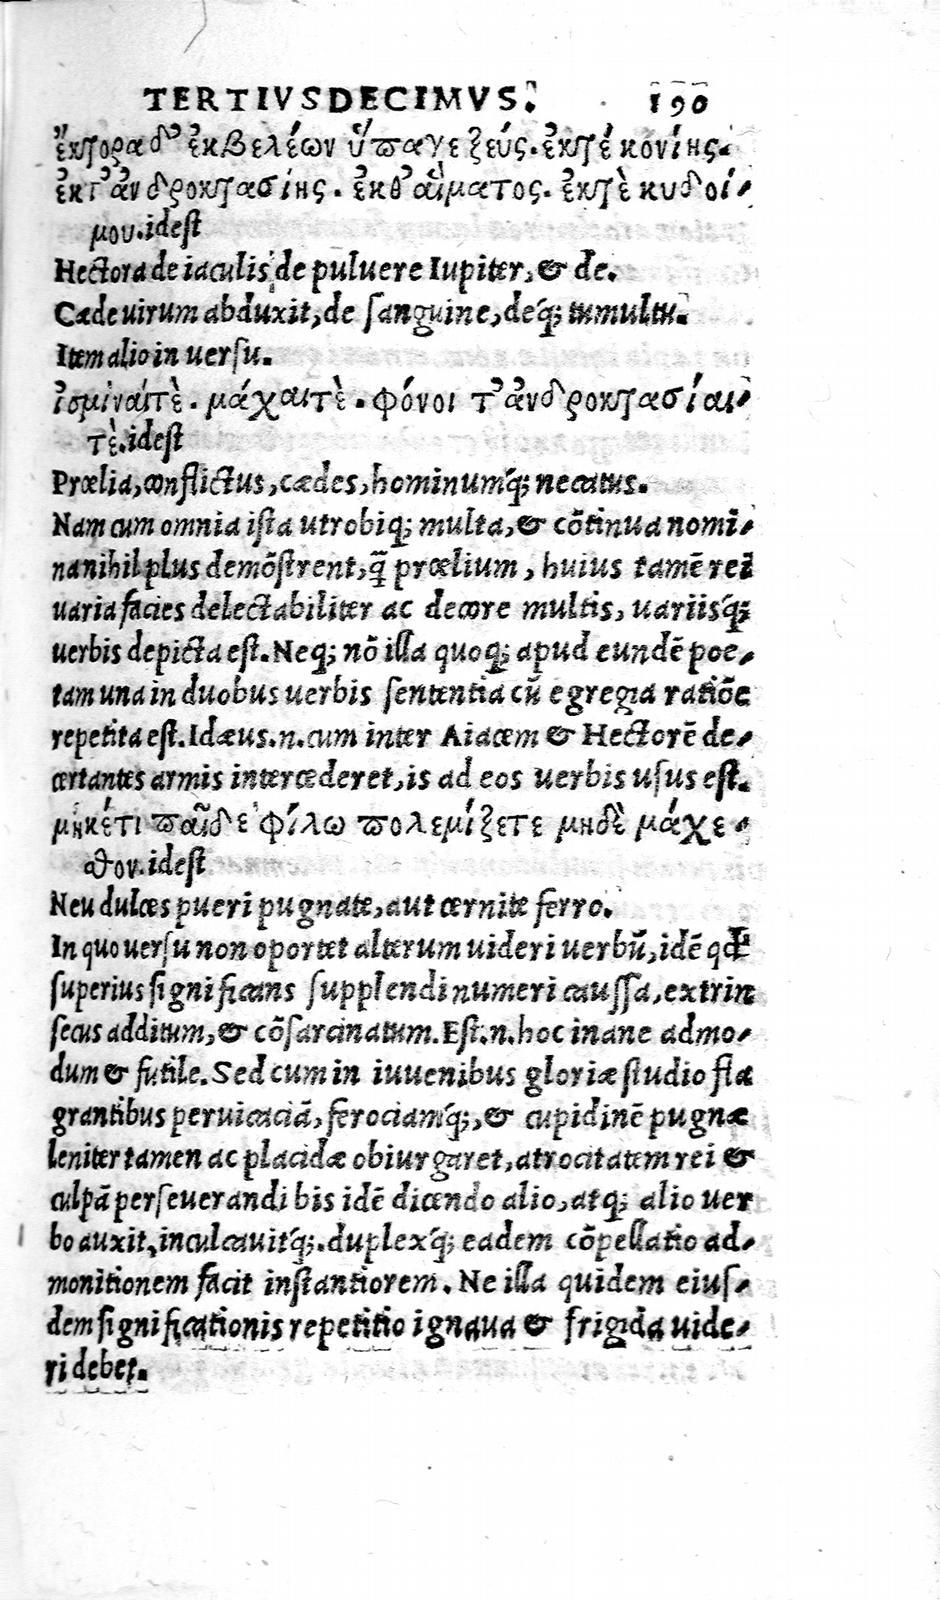 TERTIVSDECIMVS. 190
ἕκτορα δ᾽ ἐκβελέων ὕπαγε ζεύς. ἐκτέ κονίης.
ἐκτ᾽ἀνδροκτασίης. ἐκθ᾽αἵματος. ἐκτὲ κυδοι-
μου.idest
Hectora de iaculis de puluere Iupiter, & de.
Cæde uirum abduxit, de sanguine, deq́; tumultu.
Item alio in uersu.
ἰσμίναιτὲ. μάχαιτὲ. φόνοι τ᾽ἀνδροκτασίαι-
τὲ.idest
Prœlia, conflictus, cædes, hominumq́; necatus.
Nam cum omnia ista utrobiq; multa, & cōtinua nomi-
na nihil plus demōstrent, q̄ prœlium, huius tamē rei
uaria facies delectabiliter ac decore multis, uariisq́;
uerbis depicta est. Neq; nō illa quoq; apud eundē poe-
tam una in duobus uerbis sententia cū egregia ratiōe
repetita est. Idæus.n.cum inter Aiacem & Hectorē de-
certantes armis intercederet, is ad eos uerbis usus est.
μηκέτι παῖδε φίλω πολεμίζετε μηδὲ μάχε-
σθον.idest
Neu dulces pueri pugnate, aut cernite ferro.
In quo uersu non oportet alterum uideri uerbū, idē qđ
superius significans supplendi numeri caussa, extrin
secus additum, & cōsarcinatum. Est.n.hoc inane admo-
dum & futile. Sed cum in iuuenibus gloriæ studio fla
grantibus peruicaciā, ferociamq́;, & cupidinē pugnæ
leniter tamen ac placidæ obiurgaret, atrocitatem rei &
culpā perseuerandi bis idē dicendo alio, atq; alio uer
bo auxit, inculcauitq́;. duplexq́; eadem cōpellatio ad-
monitionem facit instantiorem. Ne illa quidem eius-
dem significationis repetitio ignaua & frigida uide-
ri debet.